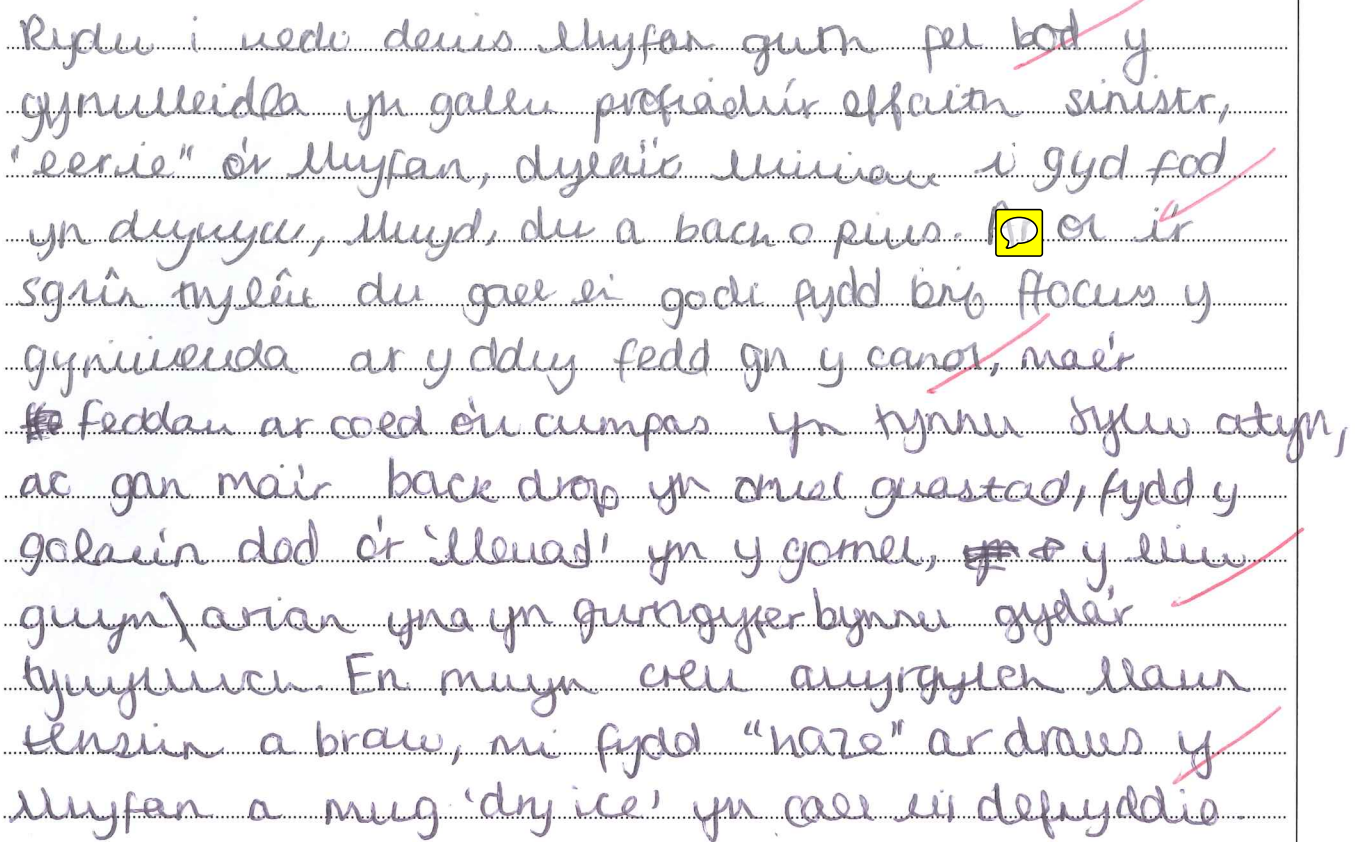 Rydw i wedi dewis llwyfan gwth fel bod y
gynulleidfa yn gallu profiadu'r effaith sinistr,
"eerie" o'r llwyfan, dylai'r lliwiau i gyd fod
yn dywyll, llwyd, du a bach o piws. ol i'r
sgrîn tryleu du gael ei godi fydd brif ffocws y
gynulleidfa ar y ddwy fedd yn y canol, mae'r
feddau ar coed o'u cwmpas yn tynnu sylw atyn,
ac gan mai'r back drop yn omel gwastad, fydd y
golau'n dod o'r 'lleuad' yn y gornel, y lliw
gwyn\ arian yna yn gwrthgyferbynnu gyda'r
tywyllwch. En mwyn creu awyrgylch llawn
tensiwn a braw, mi fydd "haze" ar draws y
llwyfan a mwg 'dry ice' yn cael eu defnyddio.